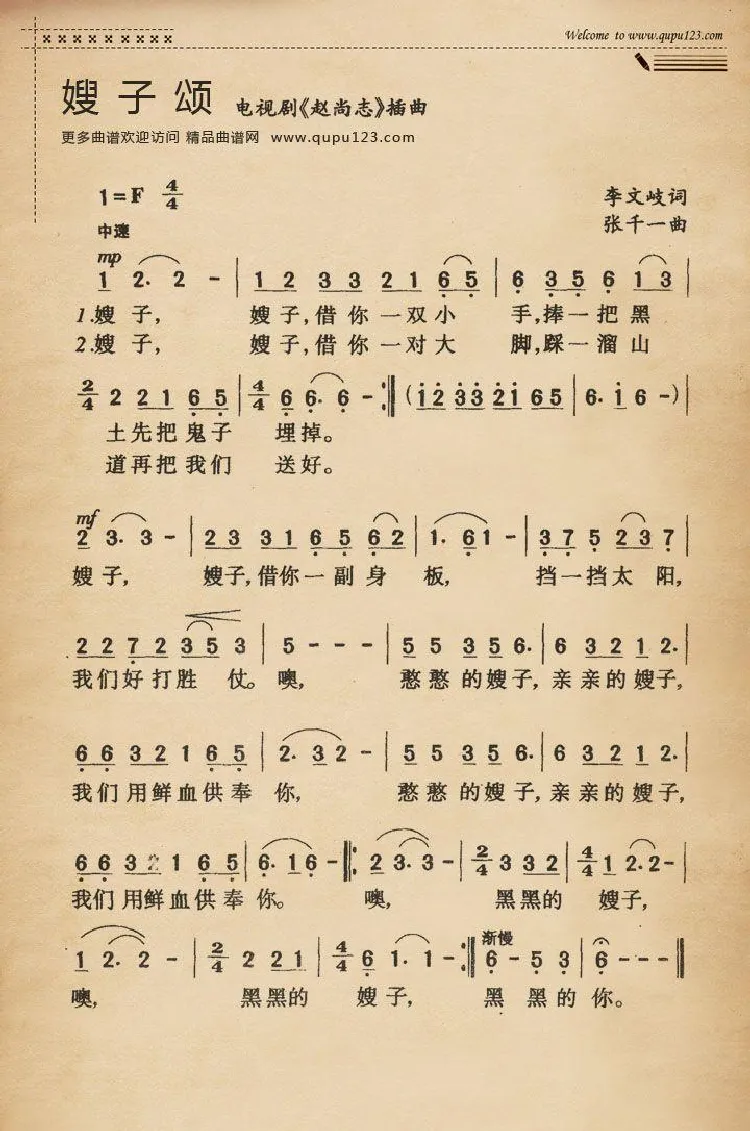 Welcome to www.qupu123.com
嫂子颂 电视剧《赵尚志》插曲
更多曲谱欢迎访问 精品曲谱网 www.qupu123.com
1=F 4/4 李文岐词
中速 张千一曲
mp
1 2. 2 - | 1 2 3 3 2 1 6 5 | 6 3 5 6 1 3 |
1.嫂子， 嫂子，借你一双小 手，捧一把黑
2.嫂子， 嫂子，借你一对大 脚，踩一溜山
2/4 2 2 1 6 5 | 4/4 6 6. 6 - :‖ (1 2 3 3 2 1 6 5 | 6. 1 6 - )
土先把鬼子 埋掉。
道再把我们 送好。
mf
2 3. 3 - | 2 3 3 1 6 5 6 2 | 1. 6 1 - | 3 7 5 2 3 7 |
嫂子， 嫂子，借你一副身 板， 挡一挡太阳，
2 2 7 2 3 5 3 | 5 - - - | 5 5 3 5 6. | 6 3 2 1 2. |
我们好打胜 仗。噢， 憨憨的嫂子，亲亲的嫂子，
6 6 3 2 1 6 5 | 2. 3 2 - | 5 5 3 5 6. | 6 3 2 1 2. |
我们用鲜血供奉 你， 憨憨的嫂子，亲亲的嫂子，
6 6 3 2 1 6 5 | 6. 1 6 - ‖: 2 3. 3 - | 2/4 3 3 2 | 4/4 1 2. 2 - |
我们用鲜血供奉 你。 噢， 黑黑的 嫂子，
渐慢
1 2. 2 - | 2/4 2 2 1 | 4/4 6 1. 1 - :‖ 6 - 5 3 | 6 - - - ‖
噢， 黑黑的 嫂子， 黑 黑的你。